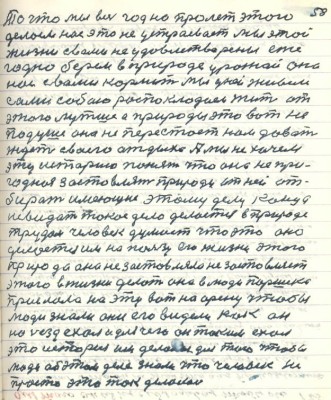 58
То что мы вот годно пролет этого
делом нас это не устраевает мы этой
жизни свами не удовлетворены еже
годно берем в природе урожай она
нас свами кормит мы ей живем
сами собою росподкладаем жить от
этого лутше а природы это вот не
подуше она не перестает нам давать
ждет своего отдыха А мы не хочем
эту историю понят что она не при-
годная заставлят природу от ней от-
бират имеющие этому делу кому
невидат такое дело делается в природе
трудом человек думает что это оно
делается им на пользу его жизни этого
природа она не заставляла не заставляет
этого в жизни делат она в люди Паршека
прислала на эту вот на арену чтобы
люди знали они его видели как он
на уезд ехал и для чего он таким ехал
это история им делалас для того чтобы
люди об этом деле знали это человек не
просто это так делалос